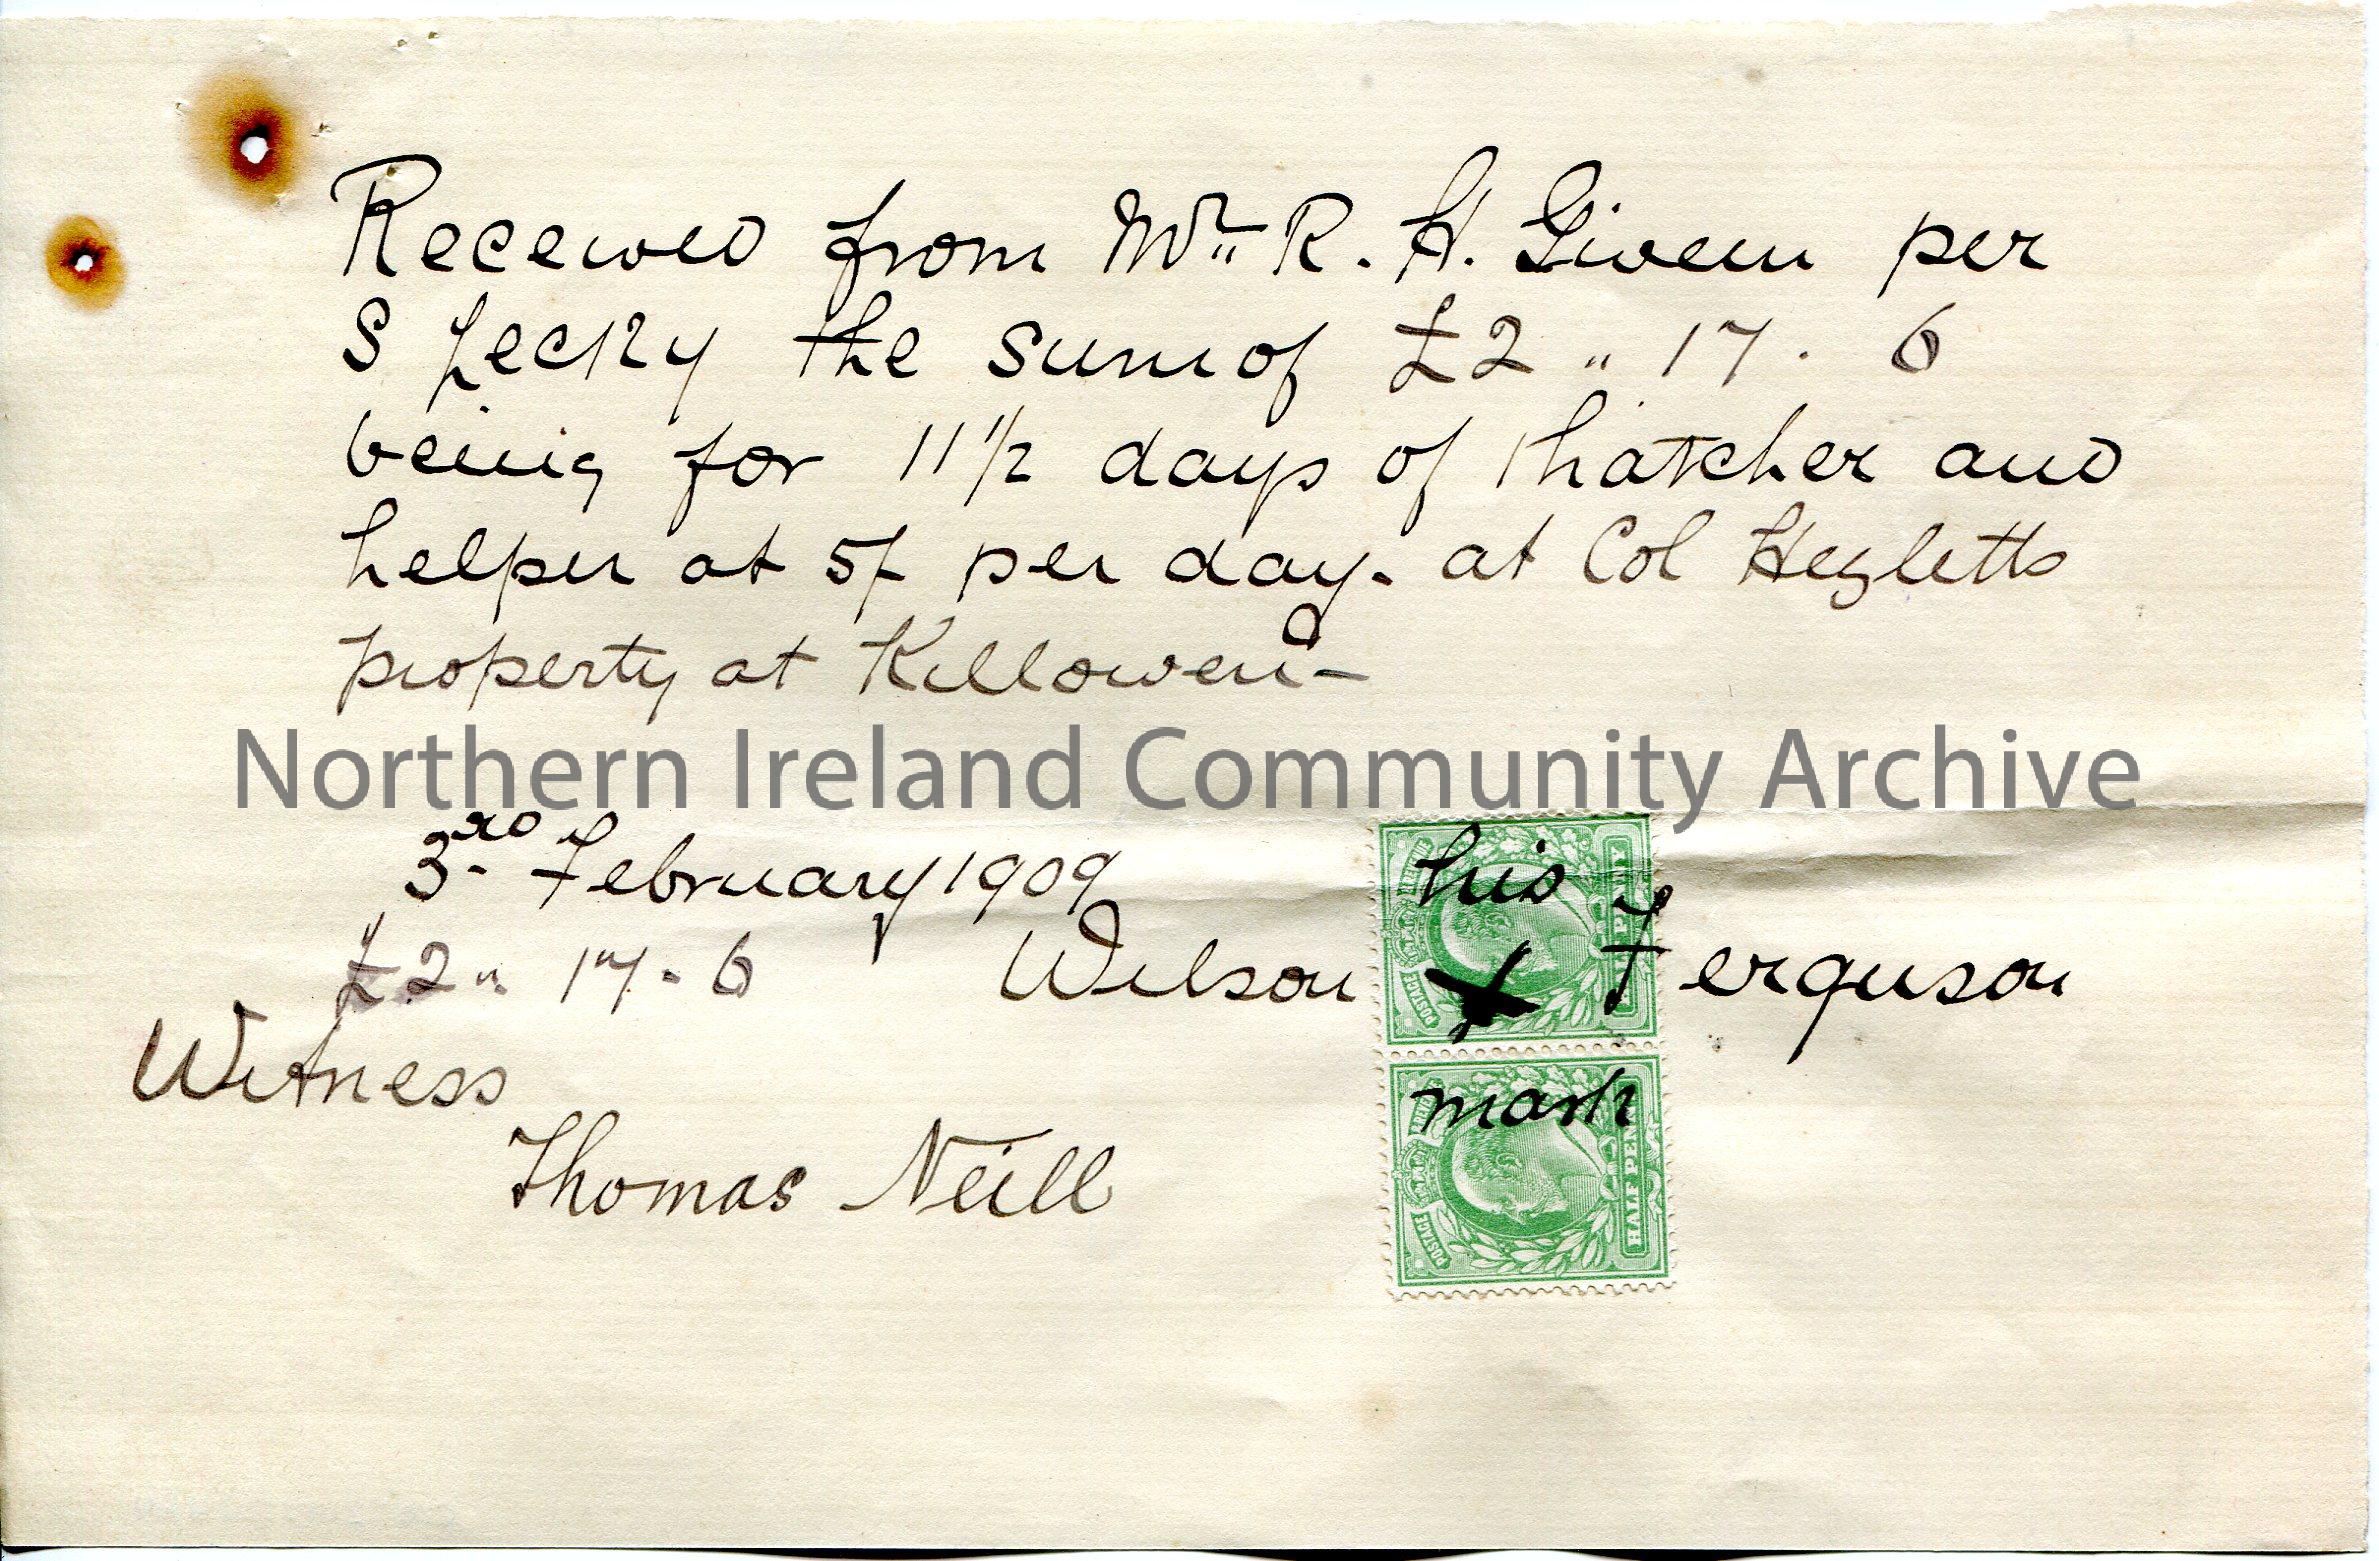 Received from Mr. R. H. Given per
S Lecky the sum of £2 " 17 . 6
being for 11 1/2 days of thatcher and
helper at 5/- per day. at Col Hezletts
property at Killowen -
Northern Ireland Community Archive
3rd February 1909
£2 " 17 . 6
Wilson his x mark Ferguson
Witness
Thomas Neill
POSTAGE
HALF PENNY
POSTAGE
HALF PENNY